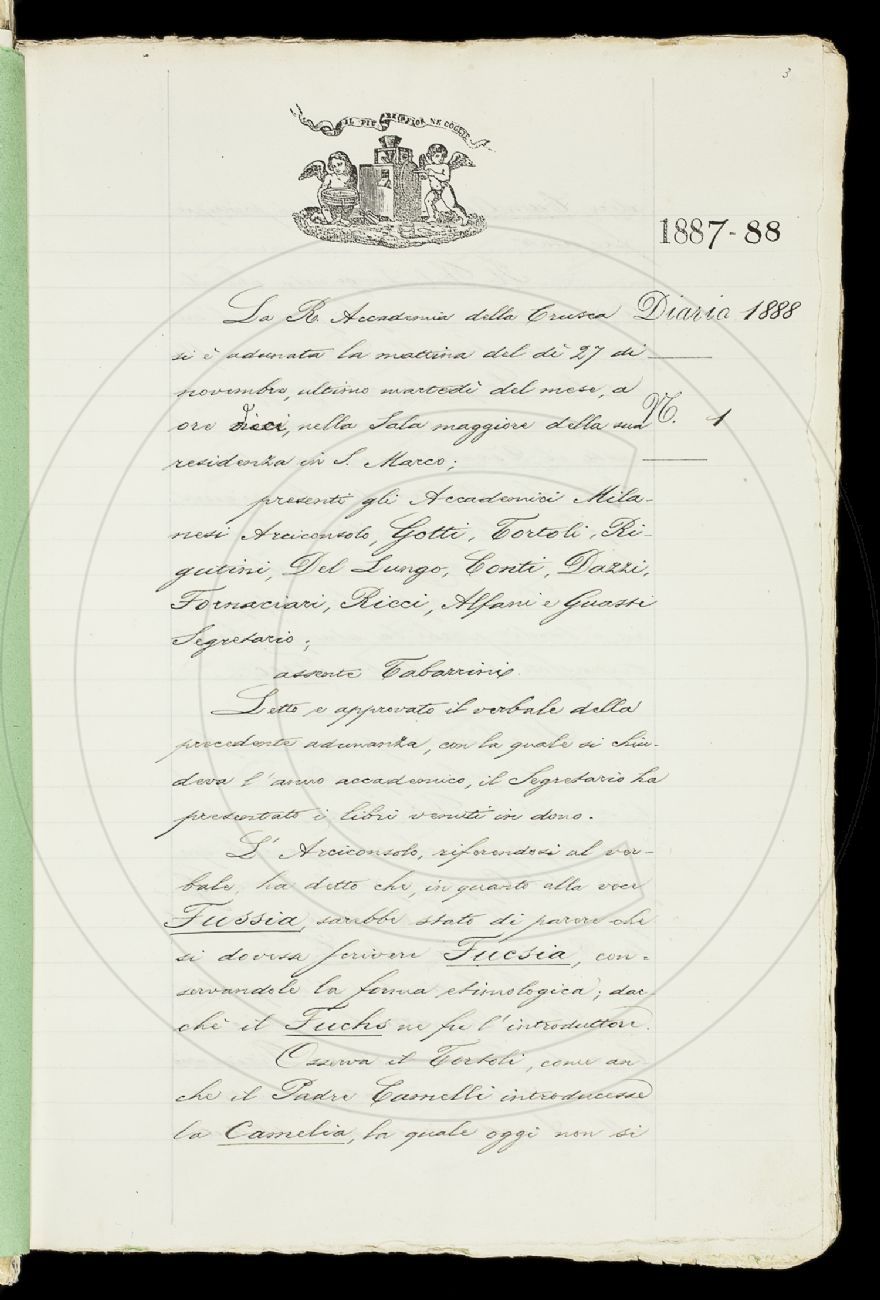 3
IL PIÙ BEL FIOR NE COGLIE
1887-88
La R. Accademia della Crusca
Diario 1888
si è adunata la mattina del dì 27 di
novembre, ultimo martedì del mese, a
ore dieci, nella Sala maggiore della sua
N. 1
residenza in S. Marco;
presenti gli Accademici Mila-
nesi Arciconsolo, Gotti, Tortoli, Ri-
gutini, Del Lungo, Conti, Dazzi,
Fornaciari, Ricci, Alfani e Guasti
Segretario;
assente Tabarrini.
Letto e approvato il verbale della
precedente adunanza, con la quale si chiu-
deva l'anno accademico, il Segretario ha
presentato i libri venuti in dono.
L'Arciconsolo, riferendosi al ver-
bale, ha detto che, in quanto alla voce
Fussia, sarebbe stato di parere che
si dovesse scrivere Fucsia, con-
servandole la forma etimologica; dac-
chè il Fuchs ne fu l'introduttore.
Osserva il Tortoli, come an-
che il Padre Camelli introducesse
la Camelia, la quale oggi non si